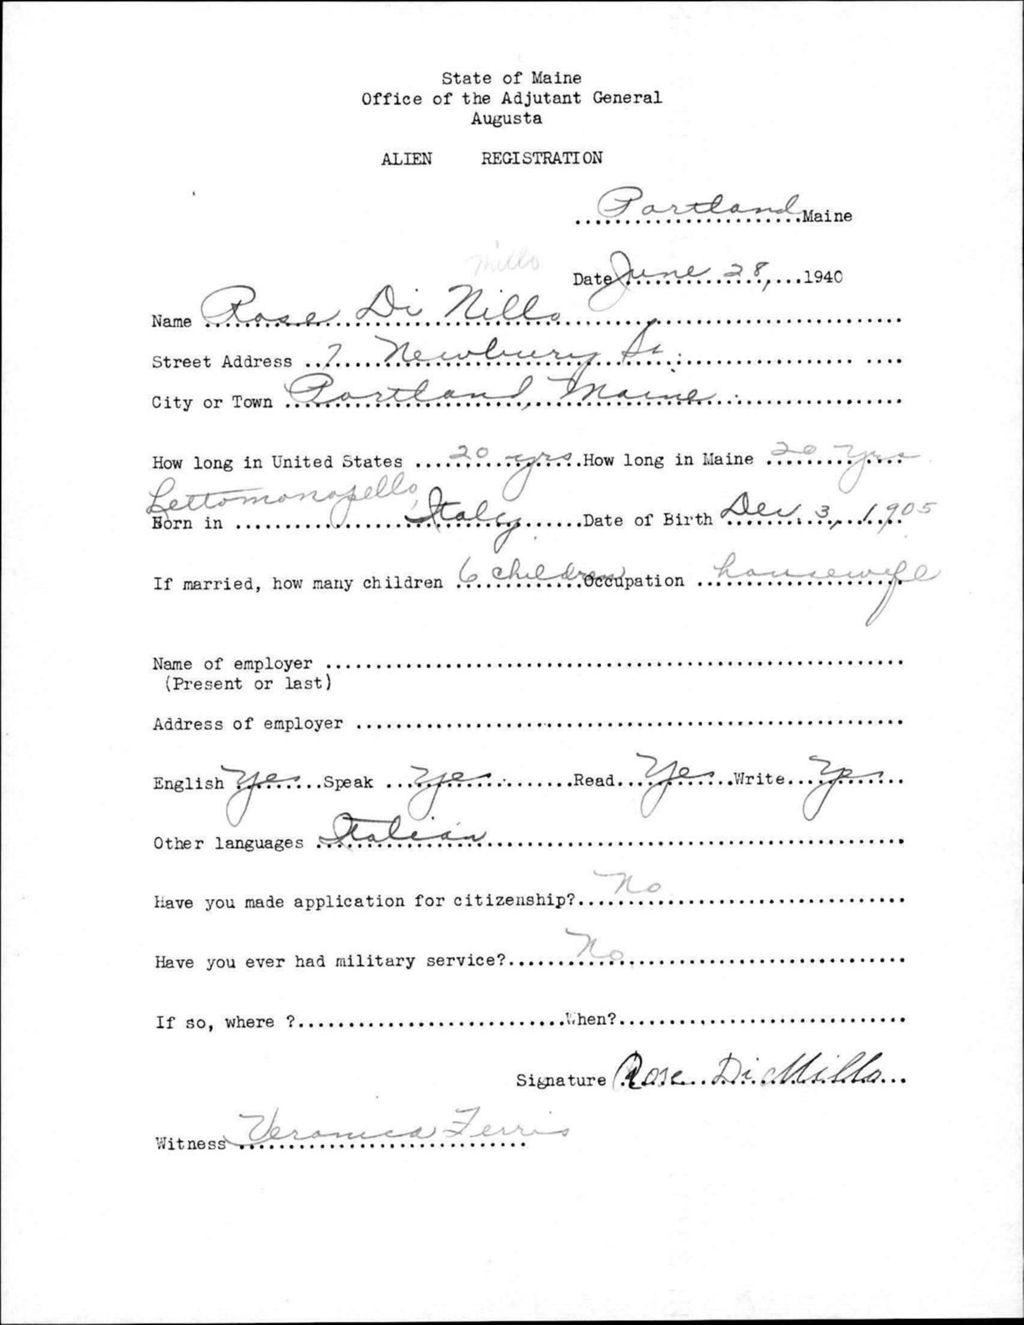 State of Maine
Office of the Adjutant General
Augusta
ALIEN REGISTRATION
Portland Maine
Millo
Date June 28, 1940
Name Rose Di Nillo
Street Address 7 Newbury St.
City or Town Portland, Maine
How long in United States 20 yrs How long in Maine 20 yrs
Lettomanapello,
Born in Italy Date of Birth Dec 3, 1905
If married, how many children 6 children Occupation housewife
Name of employer
(Present or last)
Address of employer
English Yes Speak Yes Read Yes Write Yes
Other languages Italian
Have you made application for citizenship? No
Have you ever had military service? No
If so, where ? When?
Signature Rose Di Millo
Witness Veronica Ferris